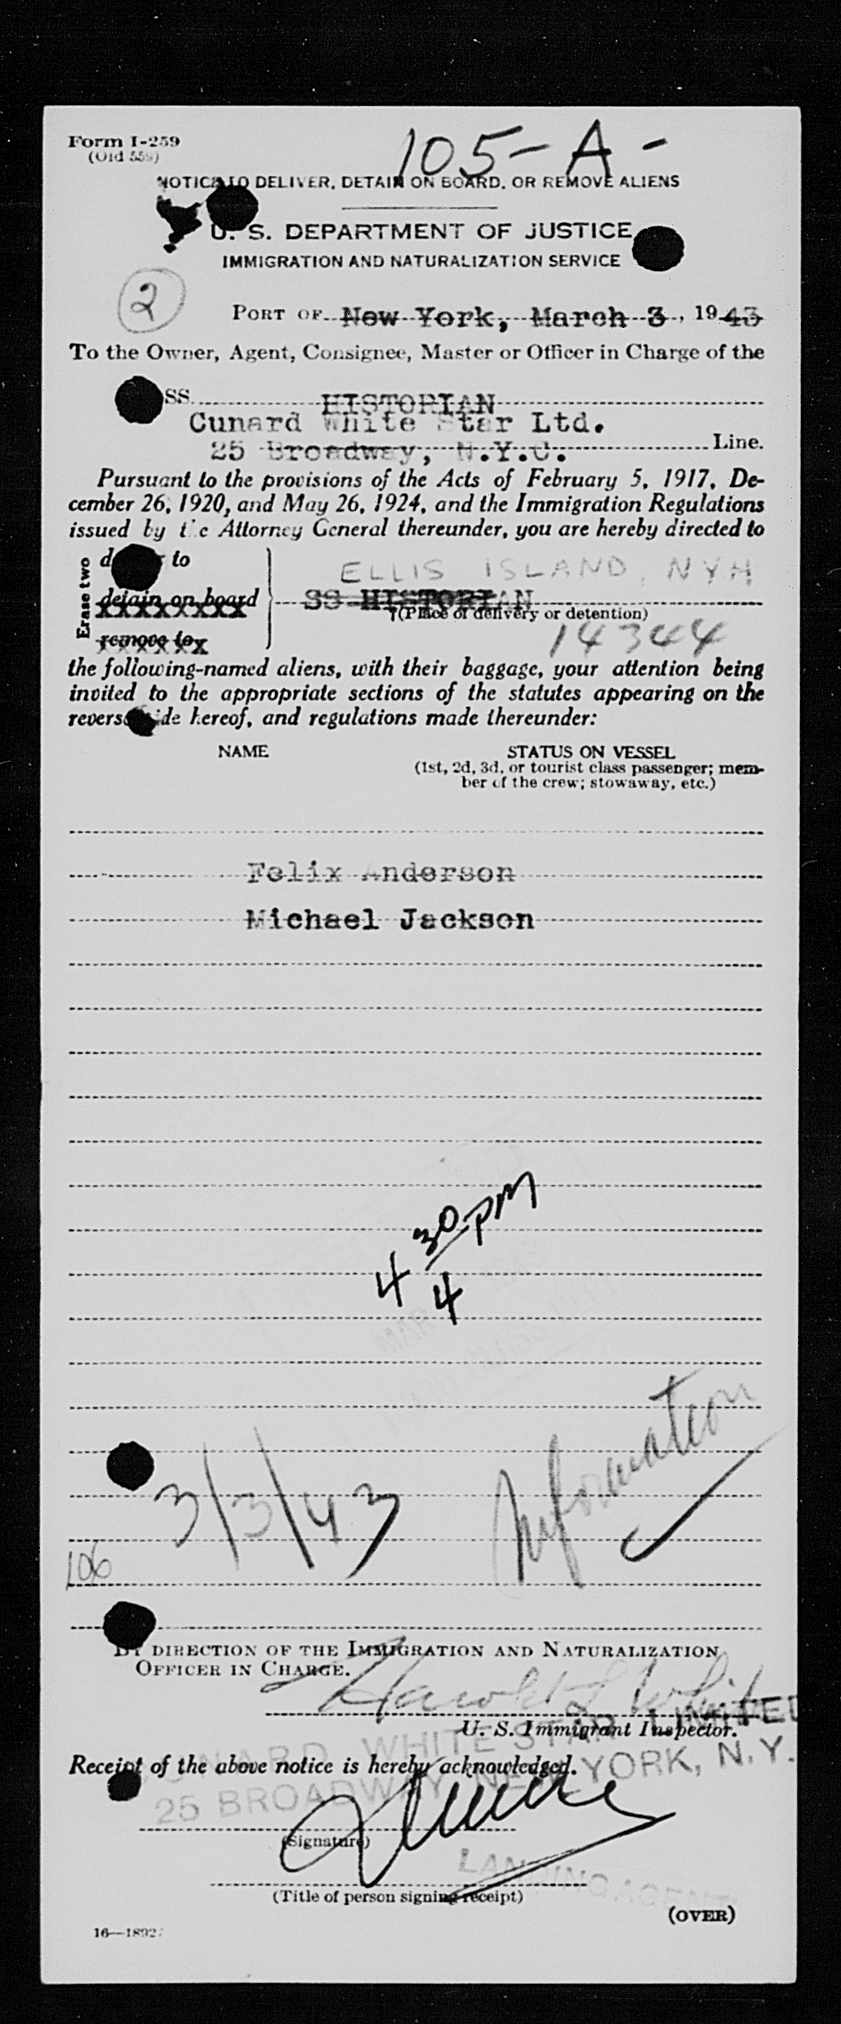 Form I-259
(Old 559)
105-A-
NOTICE TO DELIVER, DETAIN ON BOARD, OR REMOVE ALIENS
U. S. DEPARTMENT OF JUSTICE
IMMIGRATION AND NATURALIZATION SERVICE
2
PORT OF New York, March 3, 1943
To the Owner, Agent, Consignee, Master or Officer in Charge of the
SS. HISTORIAN
Cunard White Star Ltd.
25 Broadway, N.Y.C. Line.
Pursuant to the provisions of the Acts of February 5, 1917, De-
cember 26, 1920, and May 26, 1924, and the Immigration Regulations
issued by the Attorney General thereunder, you are hereby directed to
Erase two
to
ELLIS ISLAND, NYH
detain on board
SS HISTORIAN
(Place of delivery or detention)
remove to
14344
the following-named aliens, with their baggage, your attention being
invited to the appropriate sections of the statutes appearing on the
reverse side hereof, and regulations made thereunder:
NAME STATUS ON VESSEL
(1st, 2d, 3d, or tourist class passenger; mem-
ber of the crew; stowaway, etc.)
Felix Anderson
Michael Jackson
4 30 pm
4
Information
3/3/43
106
BY DIRECTION OF THE IMMIGRATION AND NATURALIZATION
OFFICER IN CHARGE.
Harold L White
U. S. Immigrant Inspector.
CUNARD WHITE STAR LIMITED
Receipt of the above notice is hereby acknowledged.
25 BROADWAY, NEW YORK, N.Y.
(Signature)
LANDING AGENT
(Title of person signing receipt)
(OVER)
16—1892